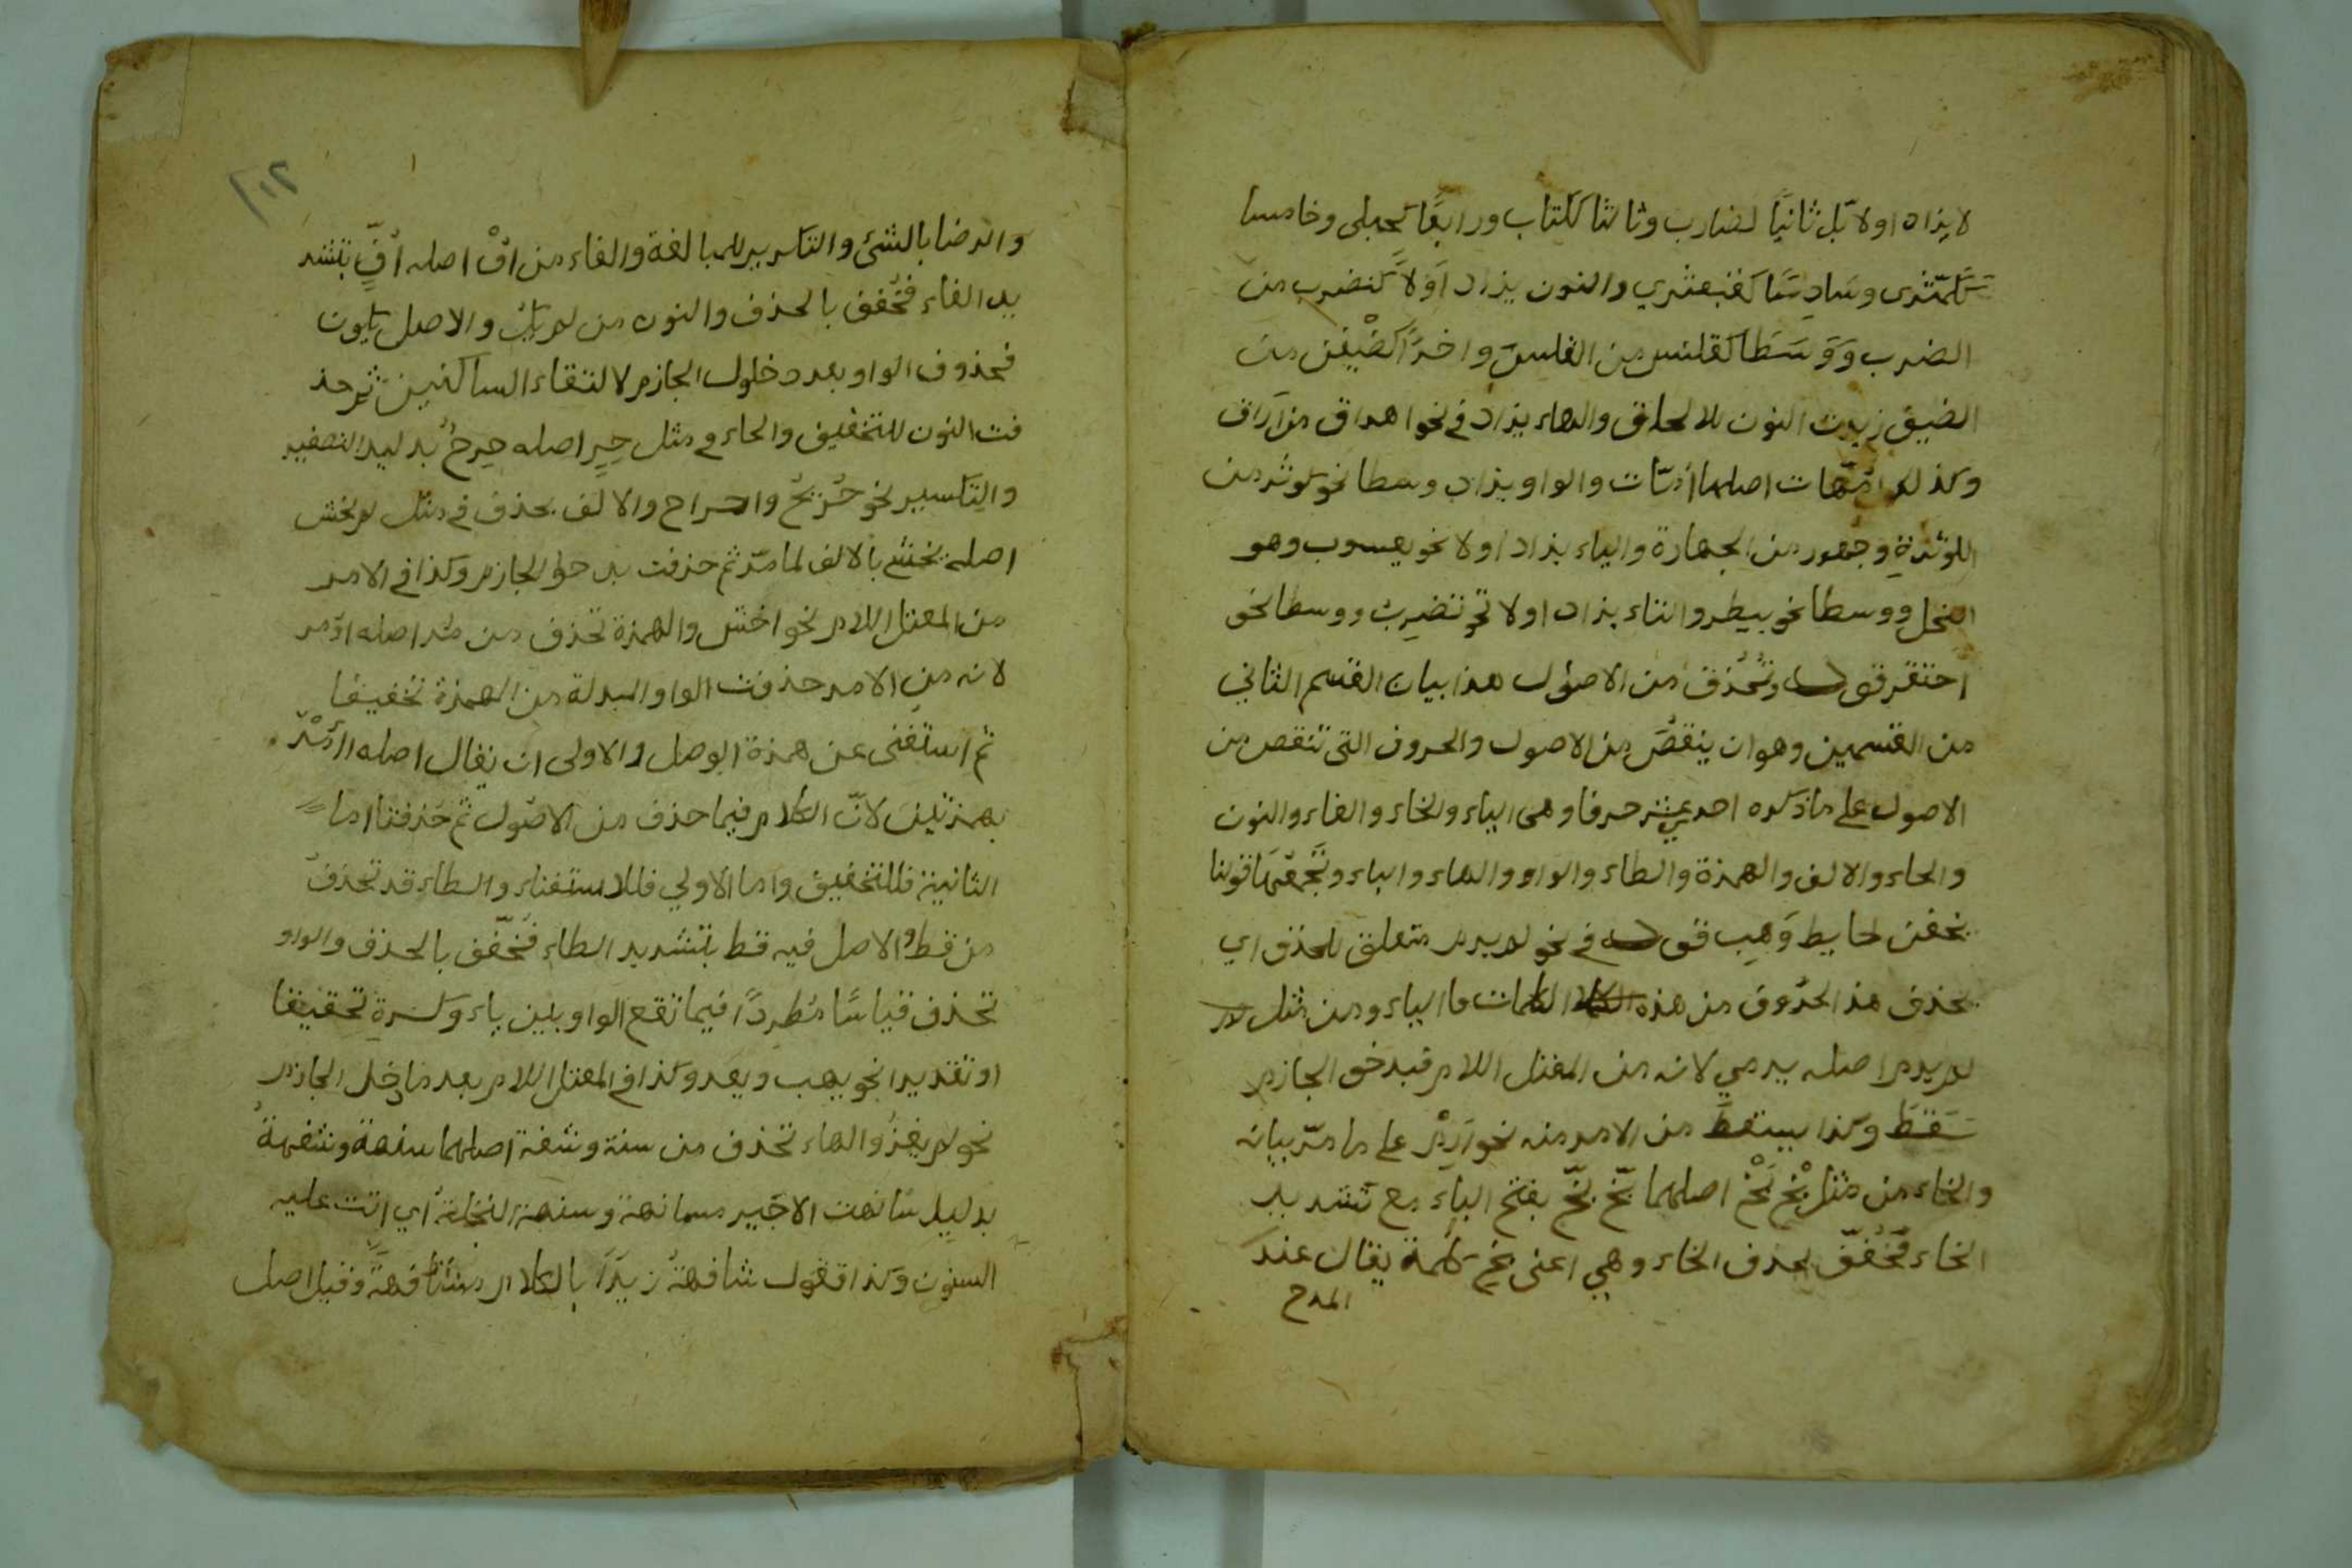 لا يزاد اولا بل ثانيًا لضارب وثالثا ككتاب ورابعًا كحبلى وخامسا
ككمّثرى وسَادِسًا كقبعثري والنون يزاد اَوّلاً كنضرب من
الضرب وَوَسَطا كقلنس من القلس واخرًا كضَيْفن من
الضيف زيدت النون للالحاق والهاء يزاد في نحو اهراق من اَرَاق
وكذلك امّهات اصلها اُمّات والواو يزاد وسطا نحو كوثر من
الكوثرة وجهور من الجهارة والياء يزاد اولا نحو يعسوب وهو
النحل ووسطا نحو بيطر والتاء يزاد اولا نحو تنضرب ووسطا نحو
احتقر قوله وتُحذف من الاصول هذا بيان القسم الثاني
من القسمين وهو ان ينقص من الاصول والحروف التي تنقص من
الاصول على ما ذكره احد عشر حرفا وهي الياء والخاء والفاء والنون
والحاء والالف والهمزة والطاء والواو والهاء والباء وتَجمعُهَا قولنا
يخفن حايط وَهِب قوله في نحو لم يرم متعلق بحذف اي
بحذف هذ الحُروف من هذه الكلمات ما الياء ومن مثل لم
لم يرم اصله يرمي لانه من المعتل اللام فبدخو الجازم
سَقطَ وكذا يسقط من الامر منه نحو اَرِمْ على ما مرّ بيانه
والخاء من مثل بَخْ بَخْ اصلهما بَخّ بَخّ بفتح الباء مع تشديد
الخاء فَخُفّف بحذف الخاء وهي اعنى بخ كلمة يقال عند
المدح
٢١٠
والرضا بالشئ والتكرير للمبالغة والفاء من افْ اصله اُفٍّ بتشد
يد الفاء فخُفف بالحذف والنون من لم يك والاصل يكون
فحذوف الواو بعد دخول الجازم لالتقاء الساكنين ثم حذ
فت النون للتخفيف والحاء في مثل حِرٍ اصله حِرحٌ بدليل التصغير
والتكسير نحو حُرَيحٌ واحراح والالف بحذف في مثل لم يخش
اصله يخشى بالالف لما مرّ ثم حذفت بدخول الجازم وكذا في الامر
من المعتل اللام نحو اخش والهمزة تحذف من مُر اصله اوُمر
لانه من الامر حذفت الواو المبدلة من الهمزة تخفيفا
ثم استغنى عن همزة الوصل والاولى ان يقال اصله اأمر
بهمزتين لانّ الكلام فيما حذف من الاصُول ثم حَذفتا اما
الثانية فللتخفيف واما الاولي فللاستغناء والطاء قد تحذف
من قط والاصل فيه قط بتشديد الطاء فخُفّف بالحذف والواو
تحذف قياسًا مُطردًا فيما تقع الواو بين ياء وكسرةٍ تحقيقا
او تقديرا نحو يهب ويعد وكذا في المعتل اللام بعد ما دخل الجازم
نحو لم يغزُ والهاء تحذف من سنة وشفة اصلهما سنهة وشفهةٌ
بدليل سَانهت الاجير مسانهة وسنهة النخلة اي اتت عليه
السنون وكذا تقول شافهت زيدًا بالكلام مشافهة وقيل اصل